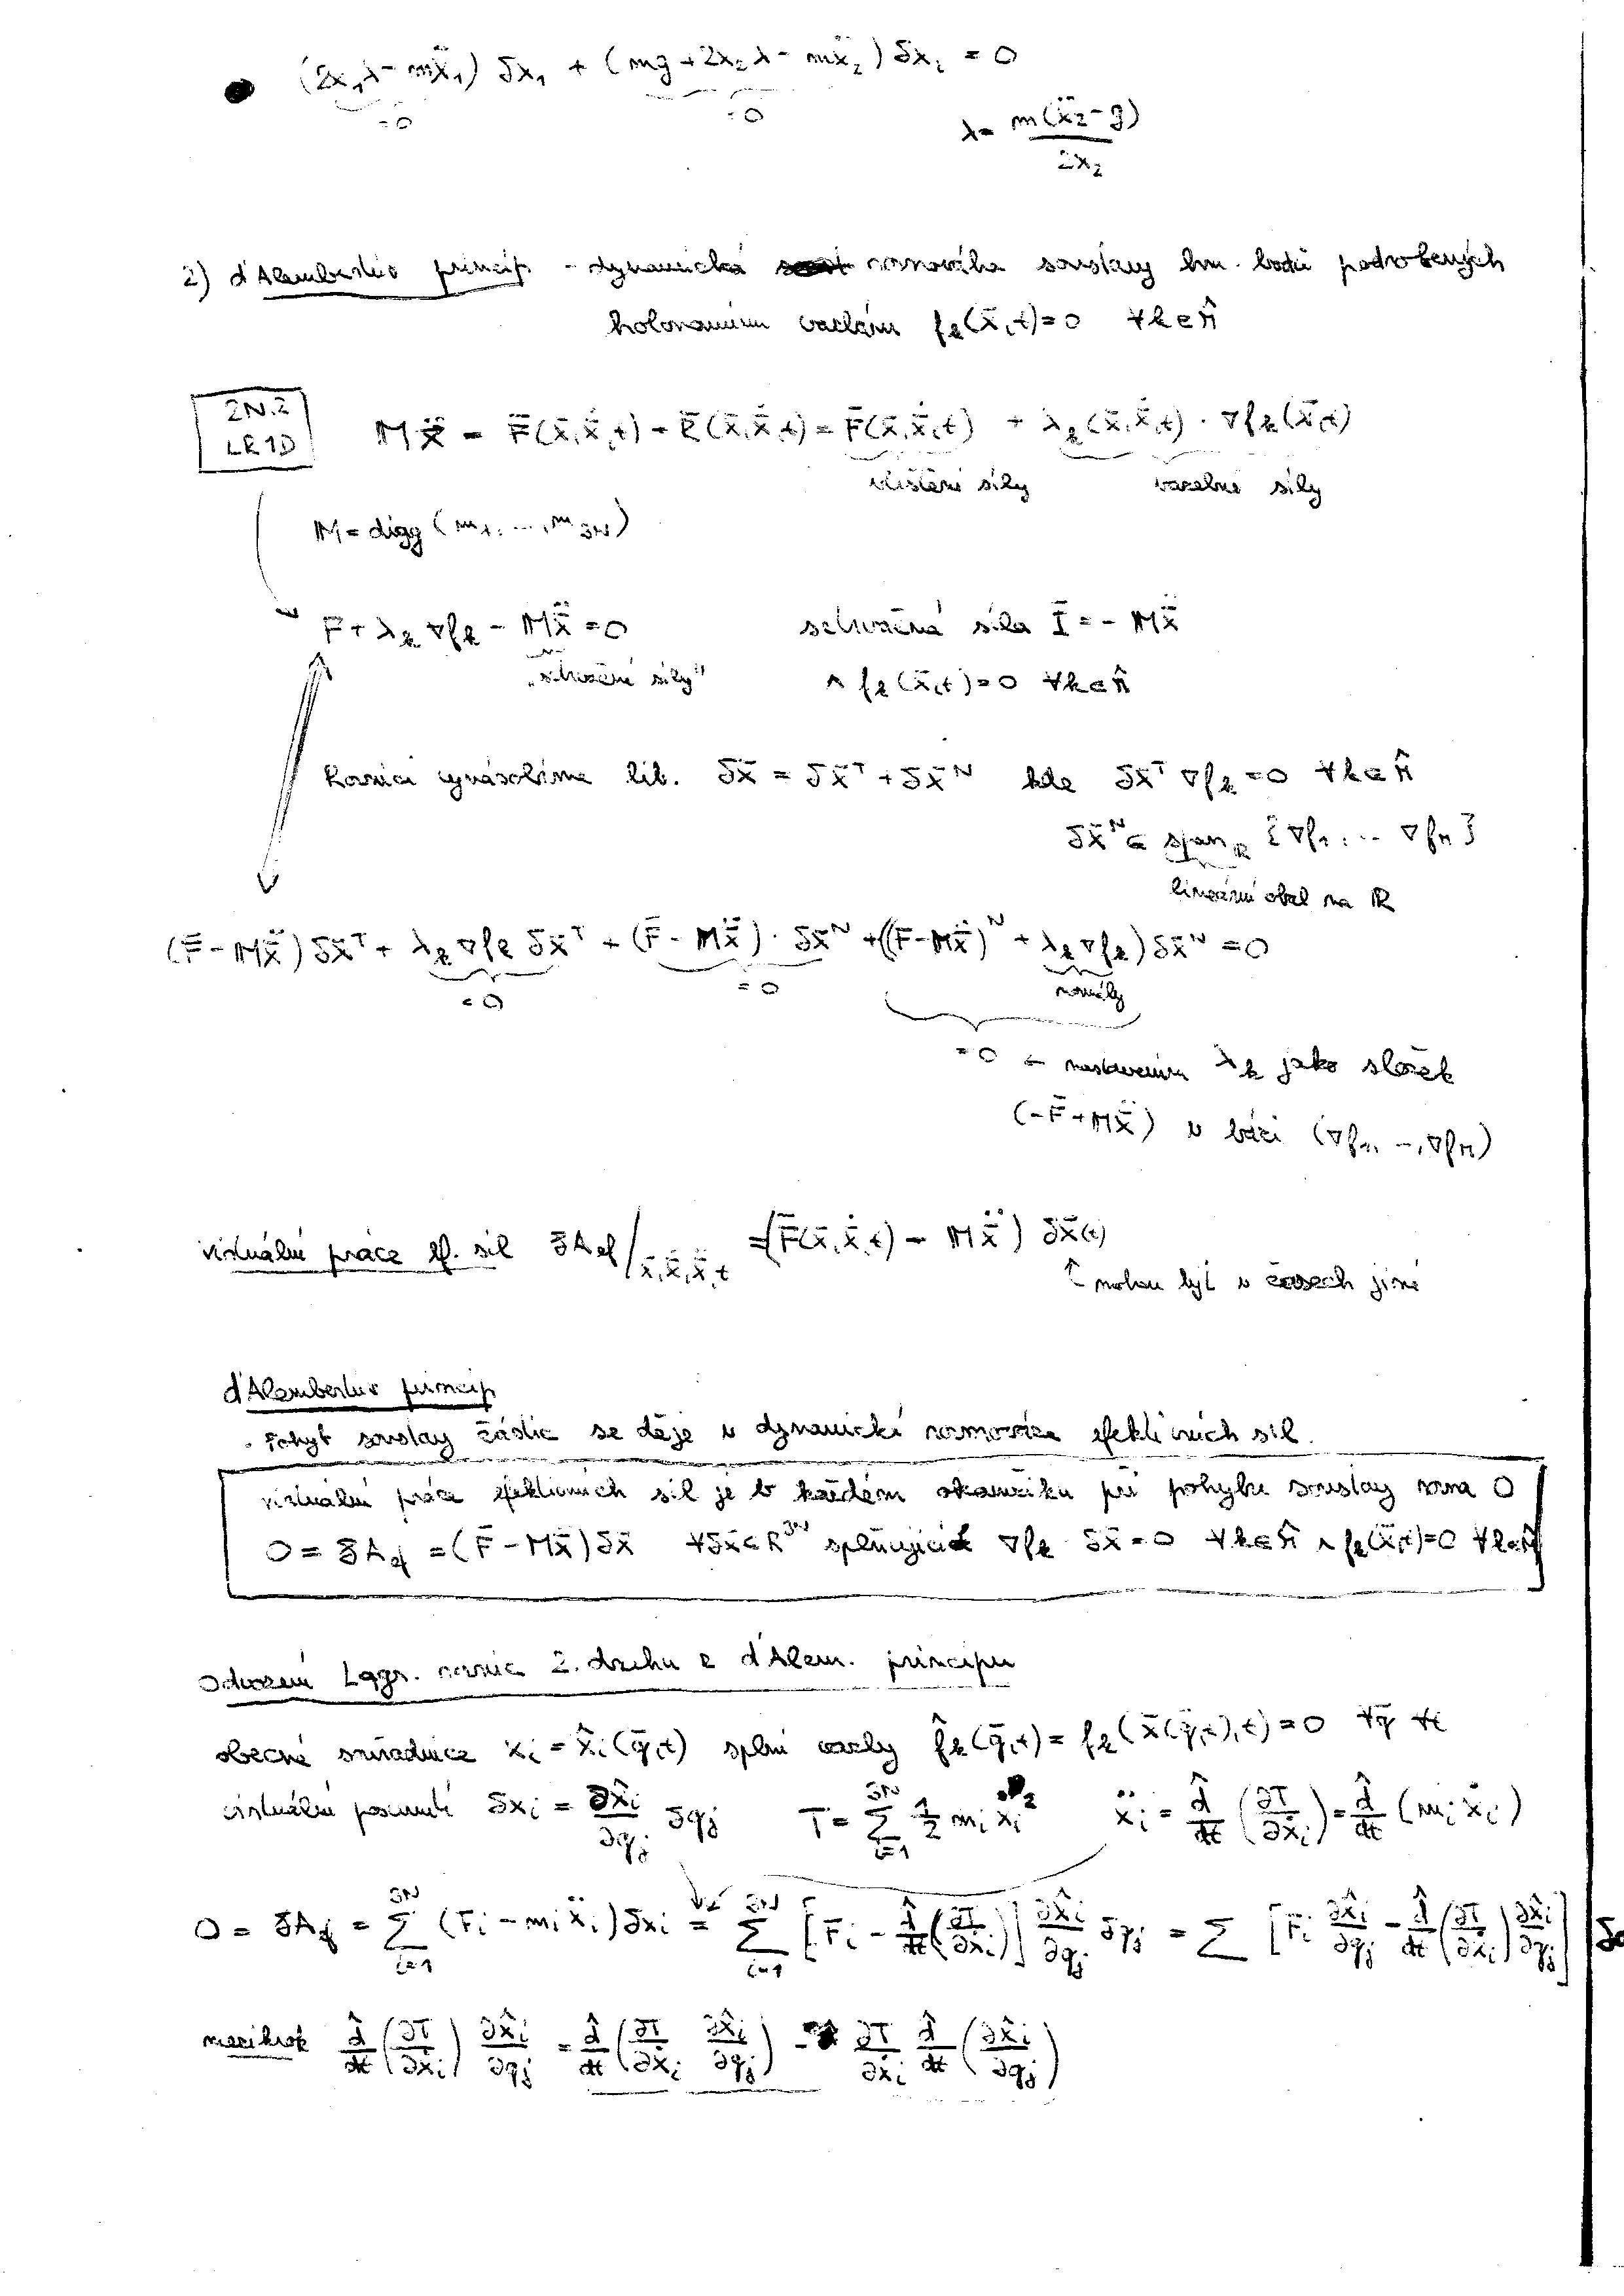 (2x₁λ - mẍ₁) δx₁ + (mg + 2x₂λ - mẍ₂) δx₂ = 0
= 0 = 0
λ = m(ẍ₂ - g) / 2x₂
2) d'Alembertův princip - dynamická rovnováha soustavy hm. bodů podrobených
holonomním vazbám f_k(x̄,t)=0 ∀k∈n̂
2N.Z
LR1D
𝕄ẍ̄ = F̄(x̄,ẋ̄,t) + R̄(x̄,ẋ̄,t) = F̄(x̄,ẋ̄,t) + λ_k(x̄,ẋ̄,t) · ∇f_k(x̄,t)
vtištěné síly vazebné síly
𝕄 = diag (m₁, ..., m_3N)
F + λ_k ∇f_k - 𝕄ẍ̄ = 0 setrvačná síla Ī = - 𝕄ẍ̄
„setrvačné síly" ∧ f_k(x̄,t)=0 ∀k∈n̂
Rovnici vynásobíme lib. δx̄ = δx̄ᵀ + δx̄ᴺ kde δx̄ᵀ ∇f_k = 0 ∀k∈n̂
δx̄ᴺ ∈ span_ℝ {∇f₁, ... ∇f_n}
lineární obal na ℝ
(F̄ - 𝕄ẍ̄) δx̄ᵀ + λ_k ∇f_k δx̄ᵀ + (F̄ - 𝕄ẍ̄) · δx̄ᴺ + ((F̄ - 𝕄ẍ̄)ᴺ + λ_k ∇f_k) δx̄ᴺ = 0
= 0 = 0 normály
= 0 ← nastavením λ_k jako složek
(-F̄ + 𝕄ẍ̄) v bázi (∇f₁, ..., ∇f_n)
virtuální práce ef. sil δA_ef /x̄,ẋ̄,ẍ̄,t = (F̄(x̄,ẋ̄,t) - 𝕄ẍ̄) δx̄(t)
↑ mohou být v časech jiné
d'Alembertův princip
- Pohyb soustavy částic se děje v dynamické rovnováze efektivních sil.
virtuální práce efektivních sil je v každém okamžiku při pohybu soustavy rovna 0
0 = δA_ef = (F̄ - 𝕄ẍ̄) δx̄ ∀δx̄∈ℝ³ᴺ splňující ∇f_k δx̄ = 0 ∀k∈n̂ ∧ f_k(x̄,t)=0 ∀k∈n̂
Odvození Lagr. rovnic 2. druhu z d'Alem. principu
obecné souřadnice x_i = x̂_i(q̄,t) splní vazby f̂_k(q̄,t) = f_k(x̄(q̄,t),t) = 0 ∀q̄ ∀t
virtuální posunutí δx_i = ∂x̂_i/∂q_j δq_j T = Σ_{i=1}^{3N} ½ m_i ẋ_i² ẍ_i = d̂/dt (∂T/∂ẋ_i) = d̂/dt (m_i ẋ_i)
0 = δA_ef = Σ_{i=1}^{3N} (F_i - m_i ẍ_i) δx_i = Σ_{i=1}^{3N} [F_i - d̂/dt (∂T/∂ẋ_i)] ∂x̂_i/∂q_j δq_j = Σ [F_i ∂x̂_i/∂q_j - d̂/dt (∂T/∂ẋ_i) ∂x̂_i/∂q_j]
mezikrok d̂/dt (∂T/∂ẋ_i) ∂x̂_i/∂q_j = d̂/dt (∂T/∂ẋ_i ∂x̂_i/∂q_j) - ∂T/∂ẋ_i d̂/dt (∂x̂_i/∂q_j)